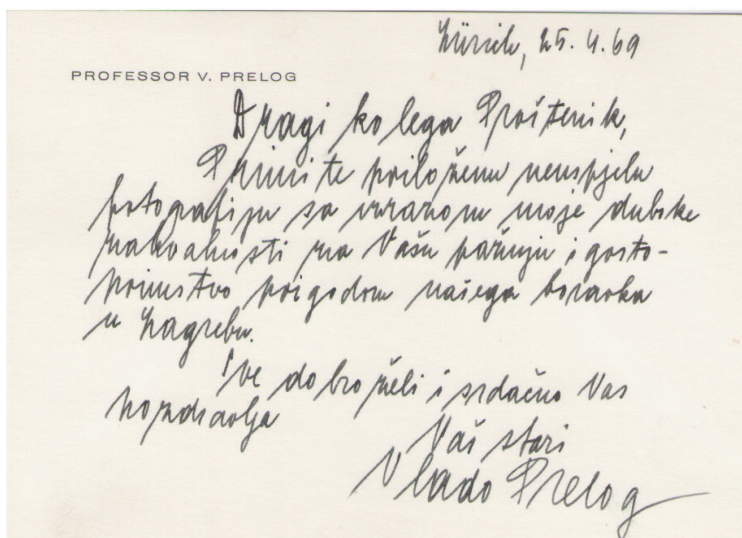 Zürich, 25. 4. 69
PROFESSOR V. PRELOG
Dragi kolega Proštenik,
Primite priloženu neuspjelu
fotografiju sa izrazom moje duboke
zahvalnosti na Vašu pažnju i gosto-
primstvo prigodom našega boravka
u Zagrebu.
Sve dobro želi i srdačno Vas
pozdravlja
Vaš stari
Vlado Prelog